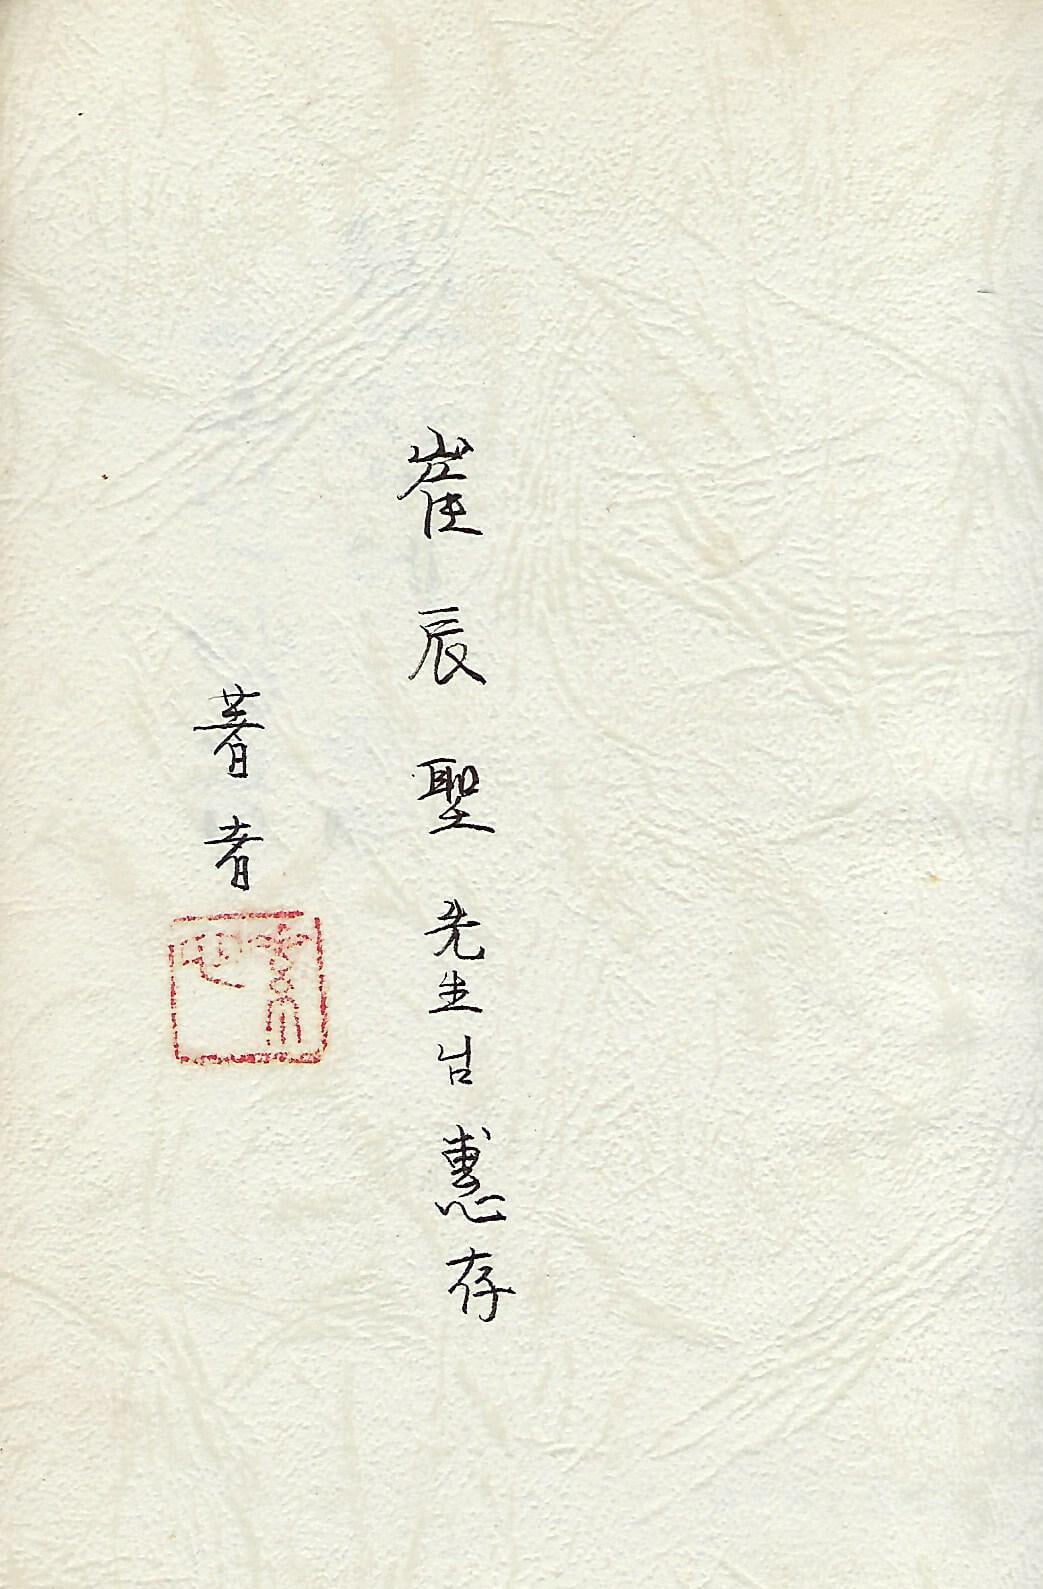 崔辰聖先生님惠存
著者